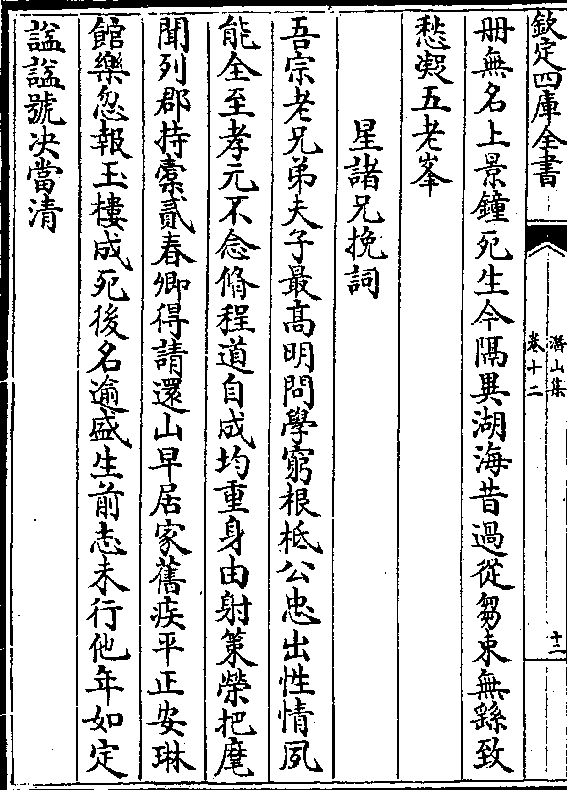 欽定四庫全書
濳山集
卷十二
十三
册無名上景鐘死生今隔異湖海昔過從芻束無繇致
愁凝五老峯
星諸兄挽詞
吾宗老兄弟夫子最高明問學窮根柢公忠出性情夙
能全至孝元不念脩程道自成均重身由射策榮把麾
聞列郡持橐貳春卿得請還山早居家舊疾平正安琳
館樂忽報玉樓成死後名逾盛生前志未行他年如定
諡諡號决當清